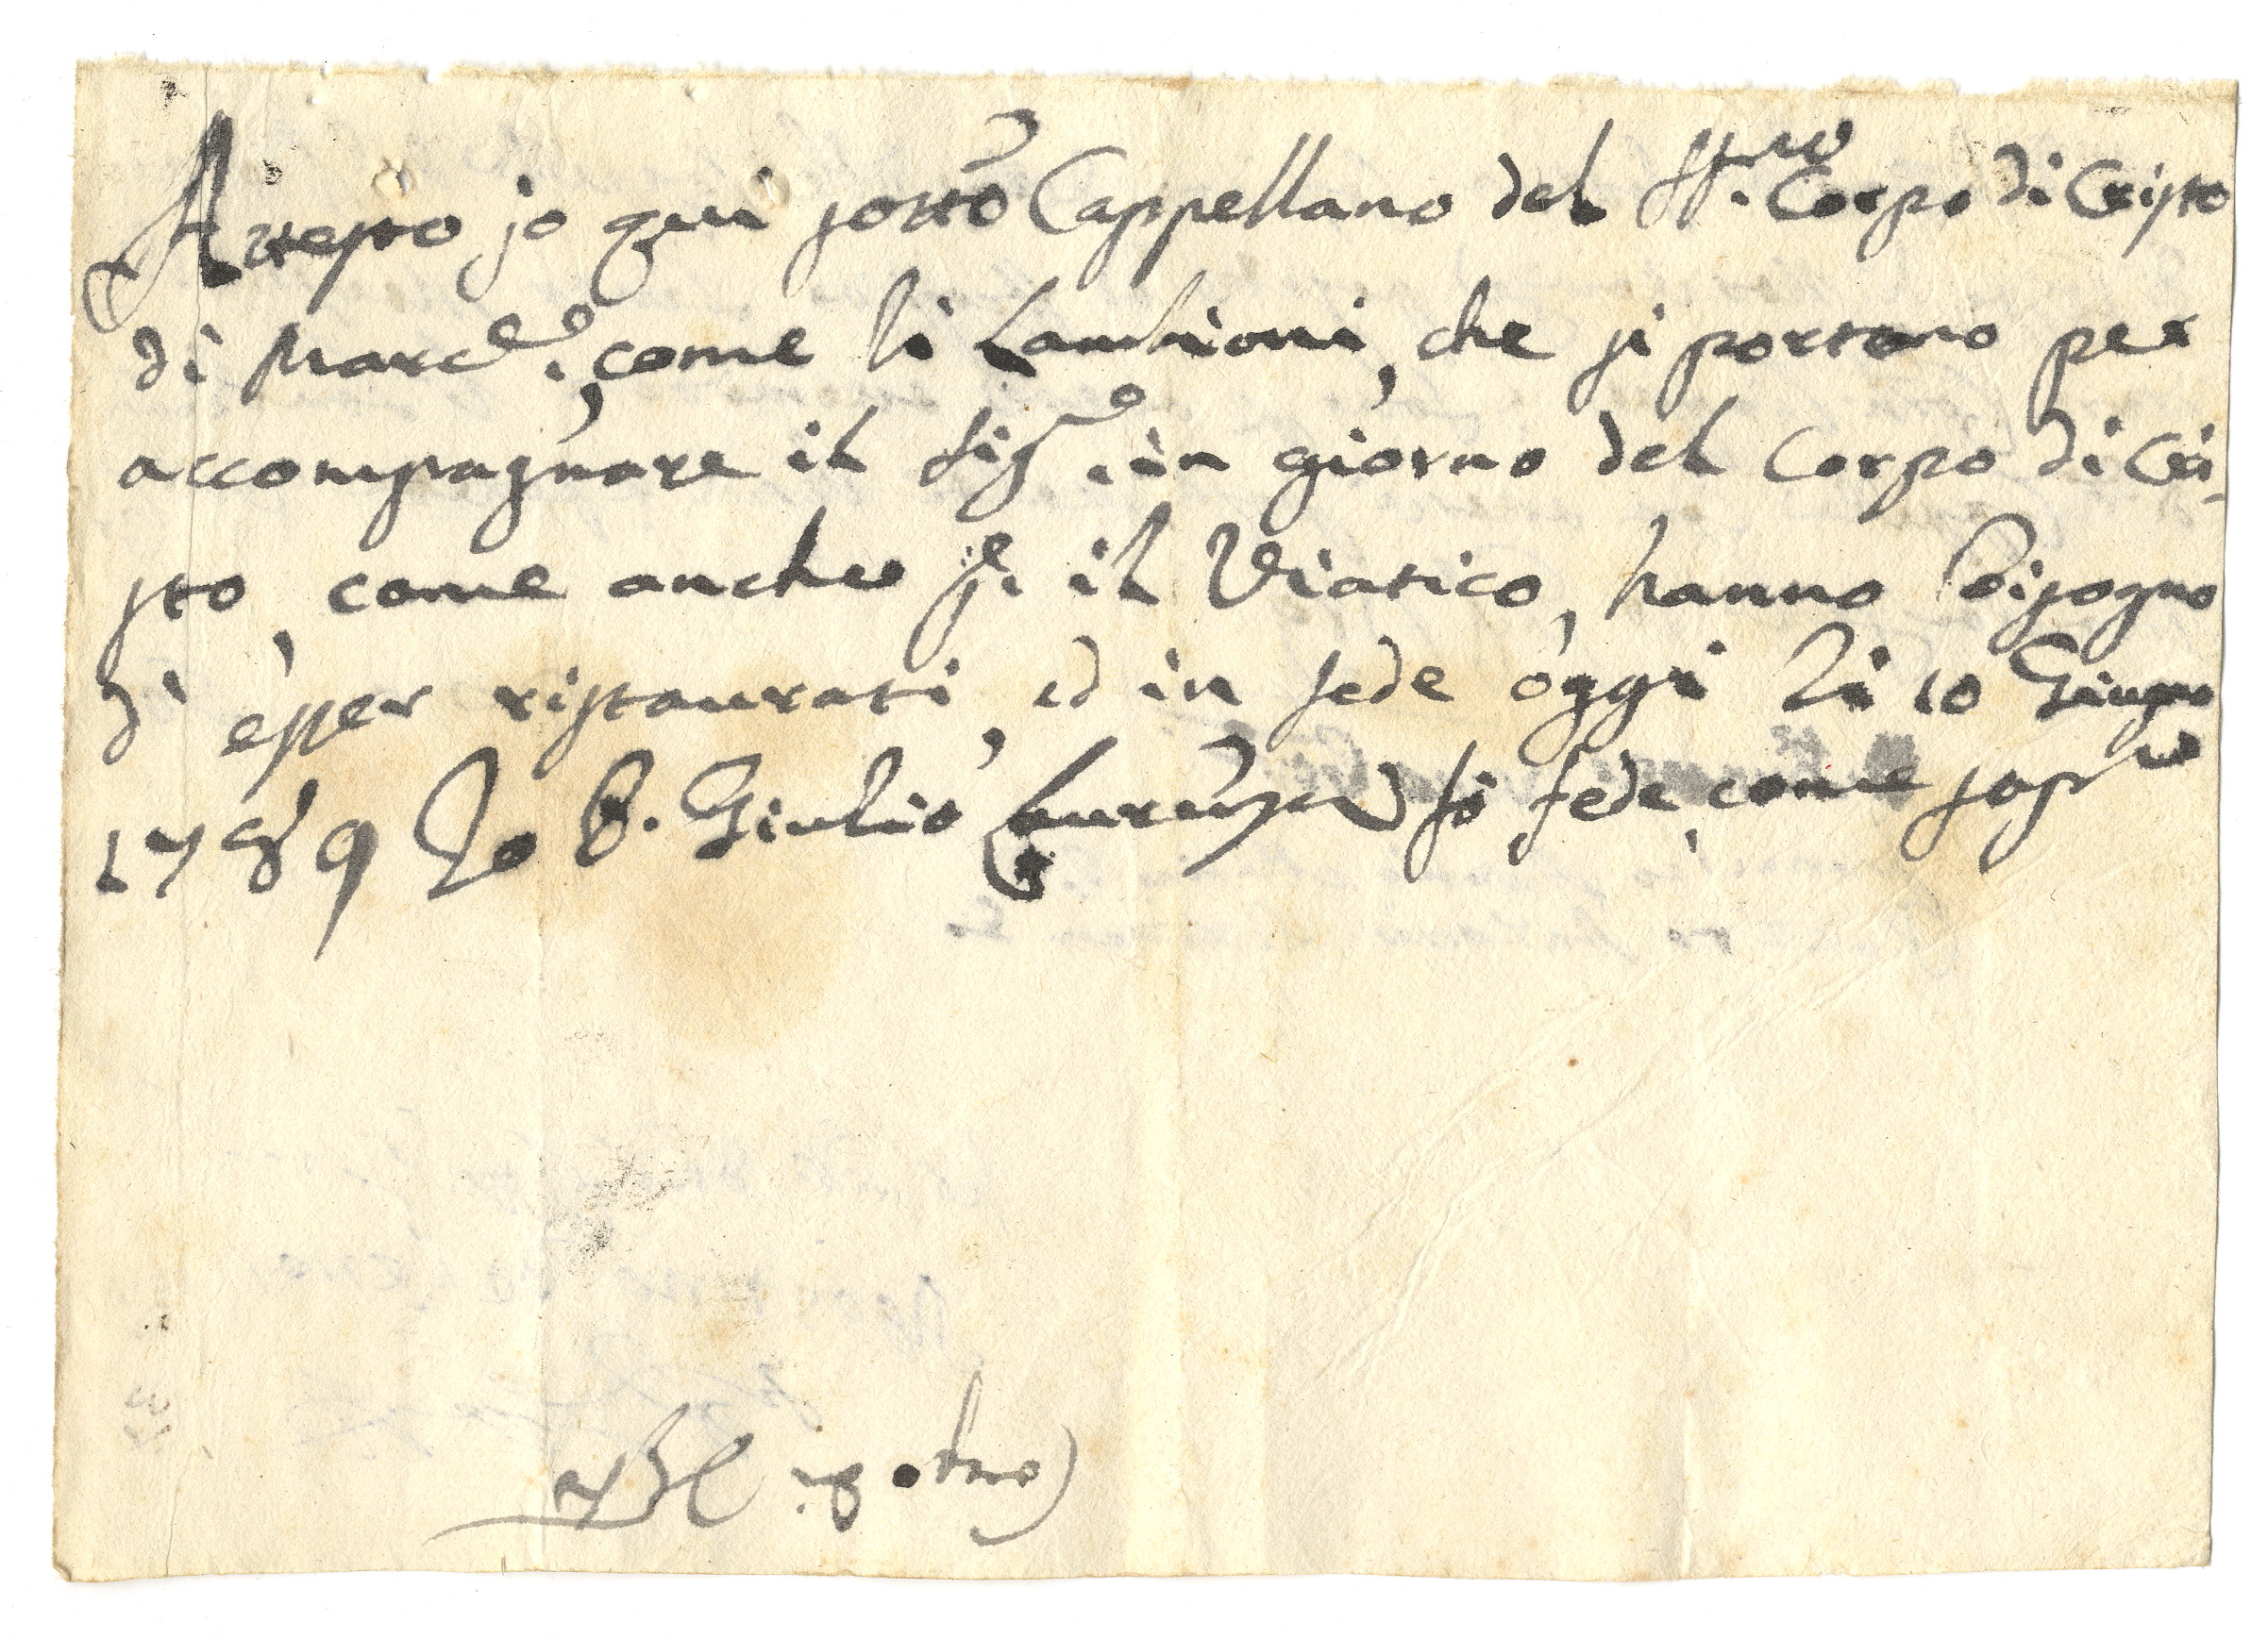 Attesto jo qui sotto Cappellano del SS.mo Corpo di Cristo
di Marc.e, come li Lambioni, che si portano per
accompagnare il Sig.e in giorno del Corpo di Cri-
sto, come anche p. il Viatico, hanno bisogno
di esser ristaurati, ed in fede oggi li 10 Giugno
1789 Io D. Giulio fò fede, come sop.a